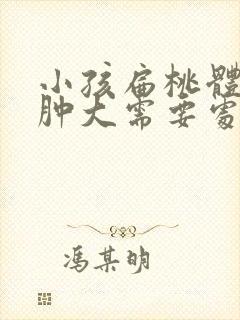 小孩扁桃體
肿大需要
冯某明